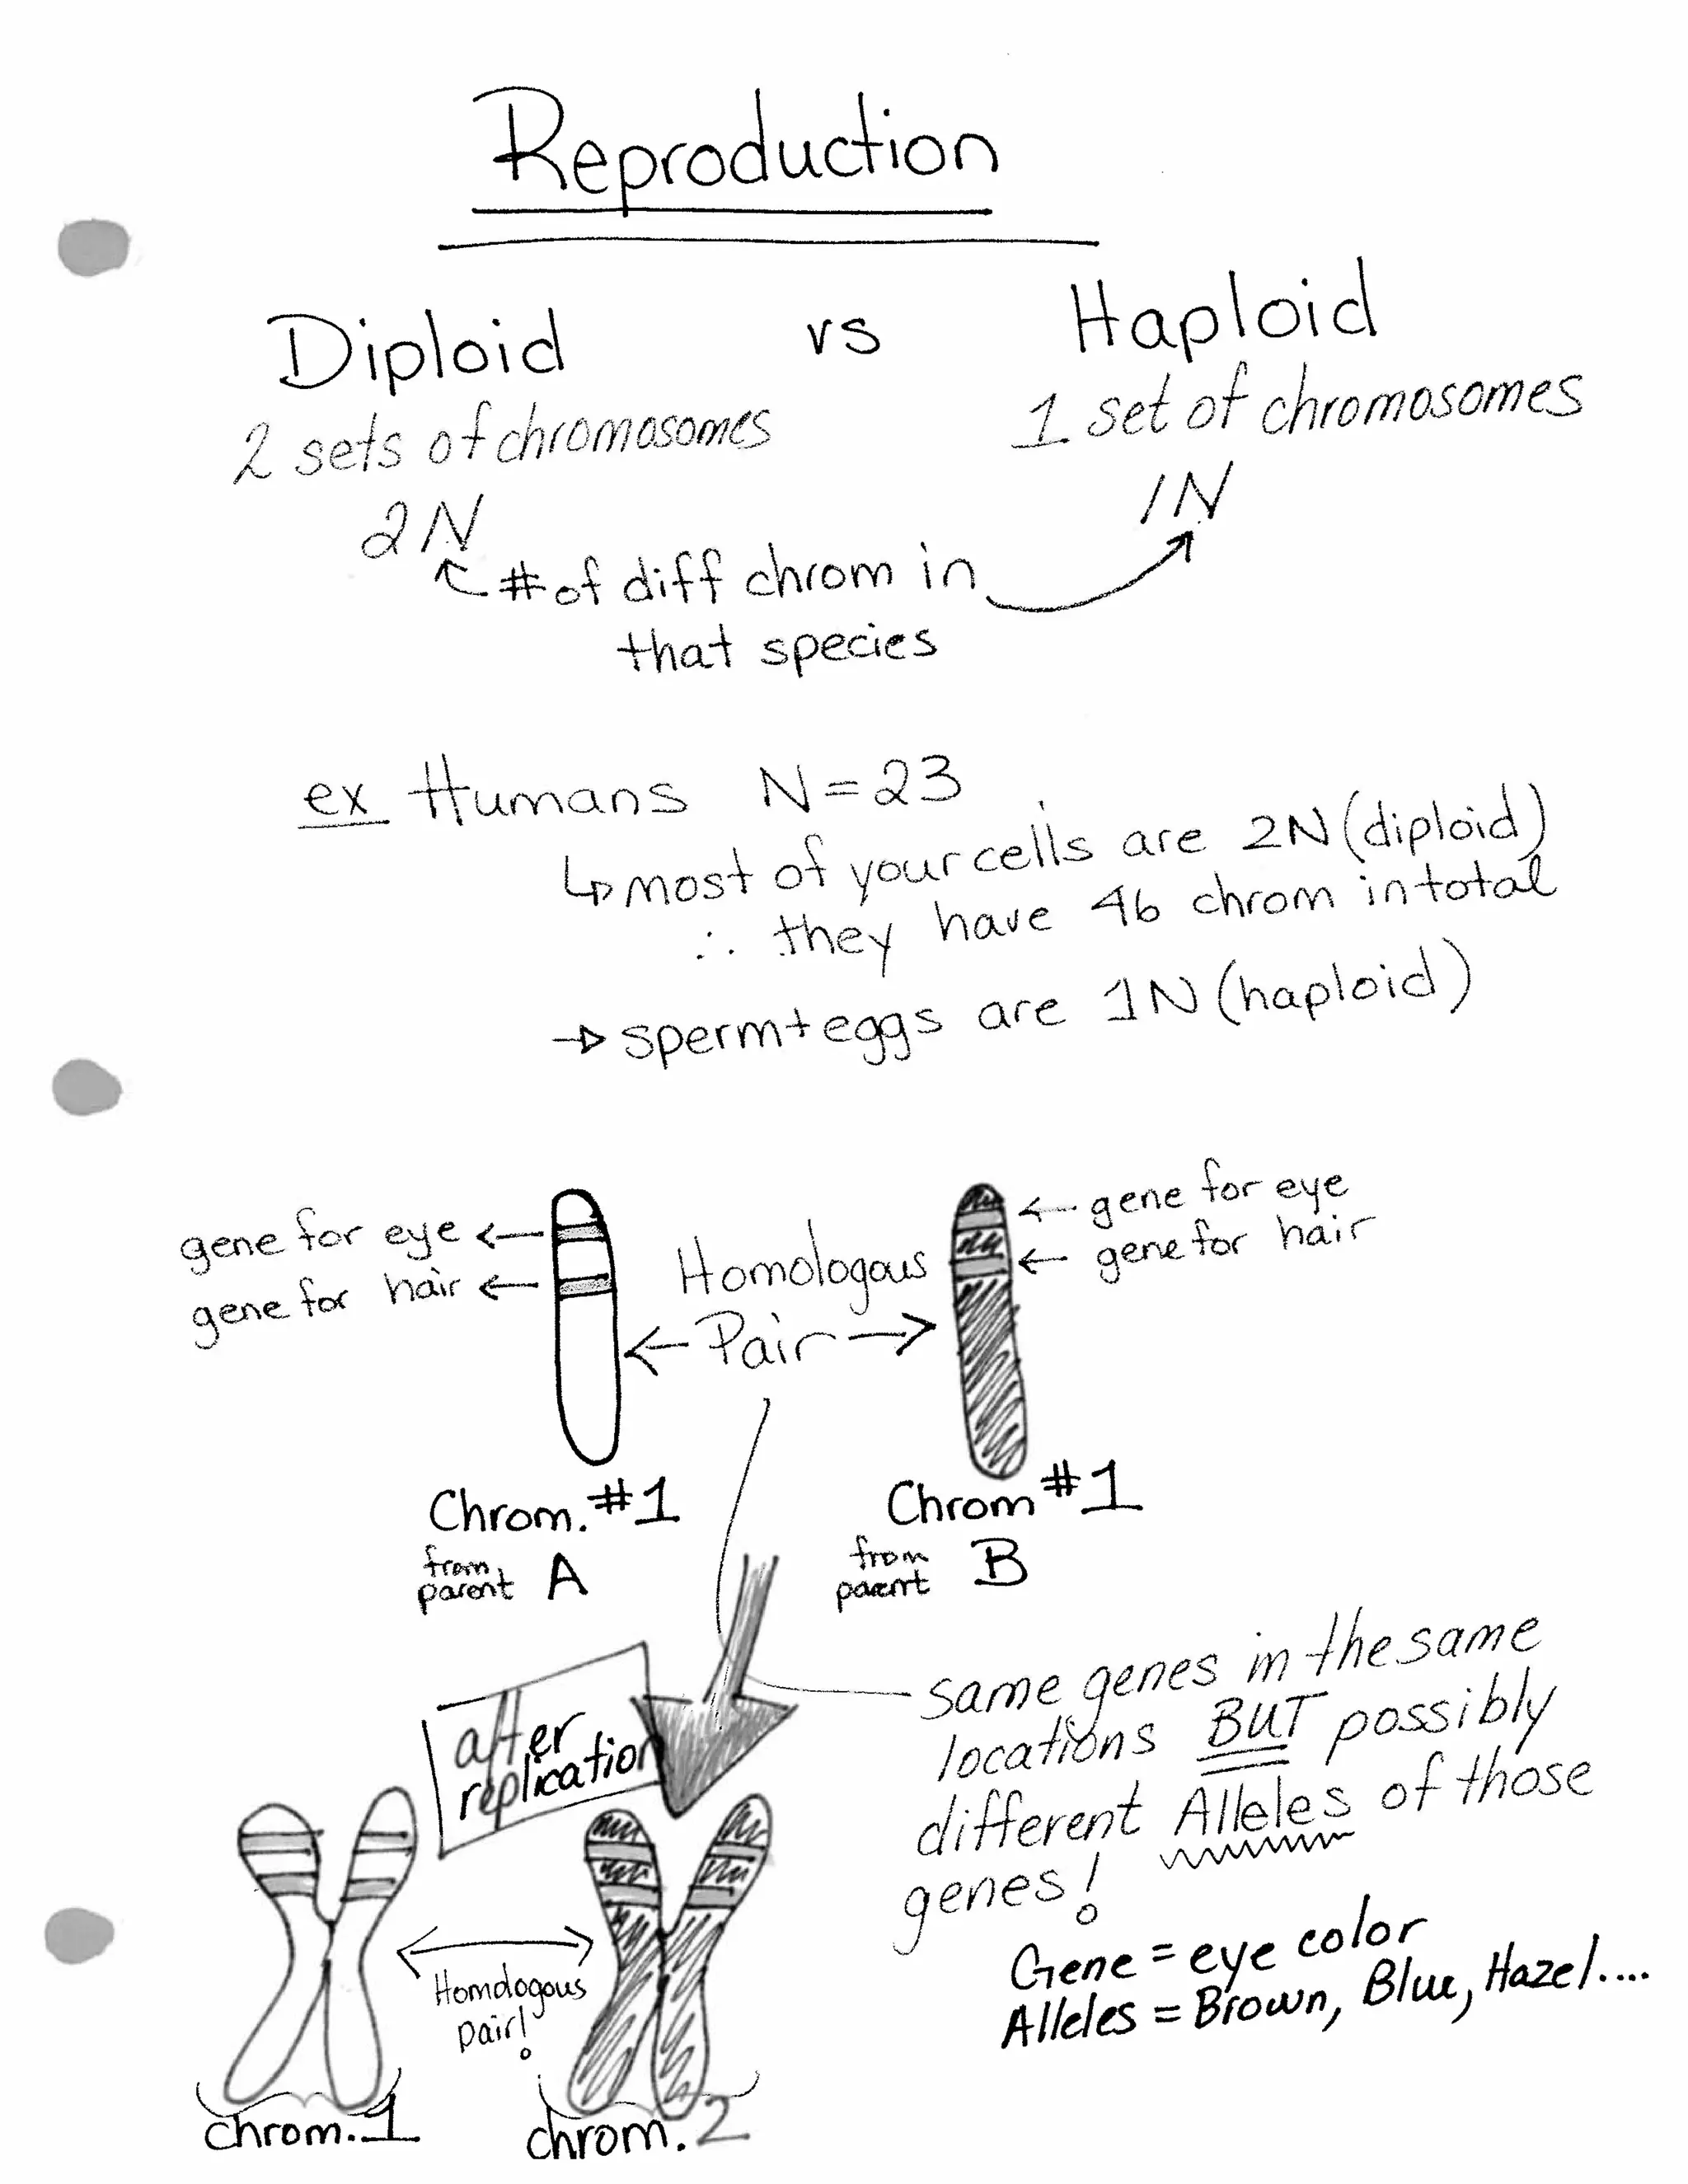 Reproduction
Diploid vs Haploid
2 sets of chromosomes
1 set of chromosomes
2N
1N
# of diff chrom in
that species
ex Humans N=23
most of your cells are 2N (diploid)
∴ they have 46 chrom in total
→ sperm + eggs are 1N (haploid)
gene for eye ←
gene for hair ←
Homologous
← Pair →
← gene for eye
← gene for hair
Chrom. #1
from
parent A
Chrom #1
from
parent B
after
replication
same genes in the same
locations BUT possibly
different Alleles of those
genes!
Gene = eye color
Alleles = Brown, Blue, Hazel....
Homologous
pair!
chrom. 1
chrom. 2